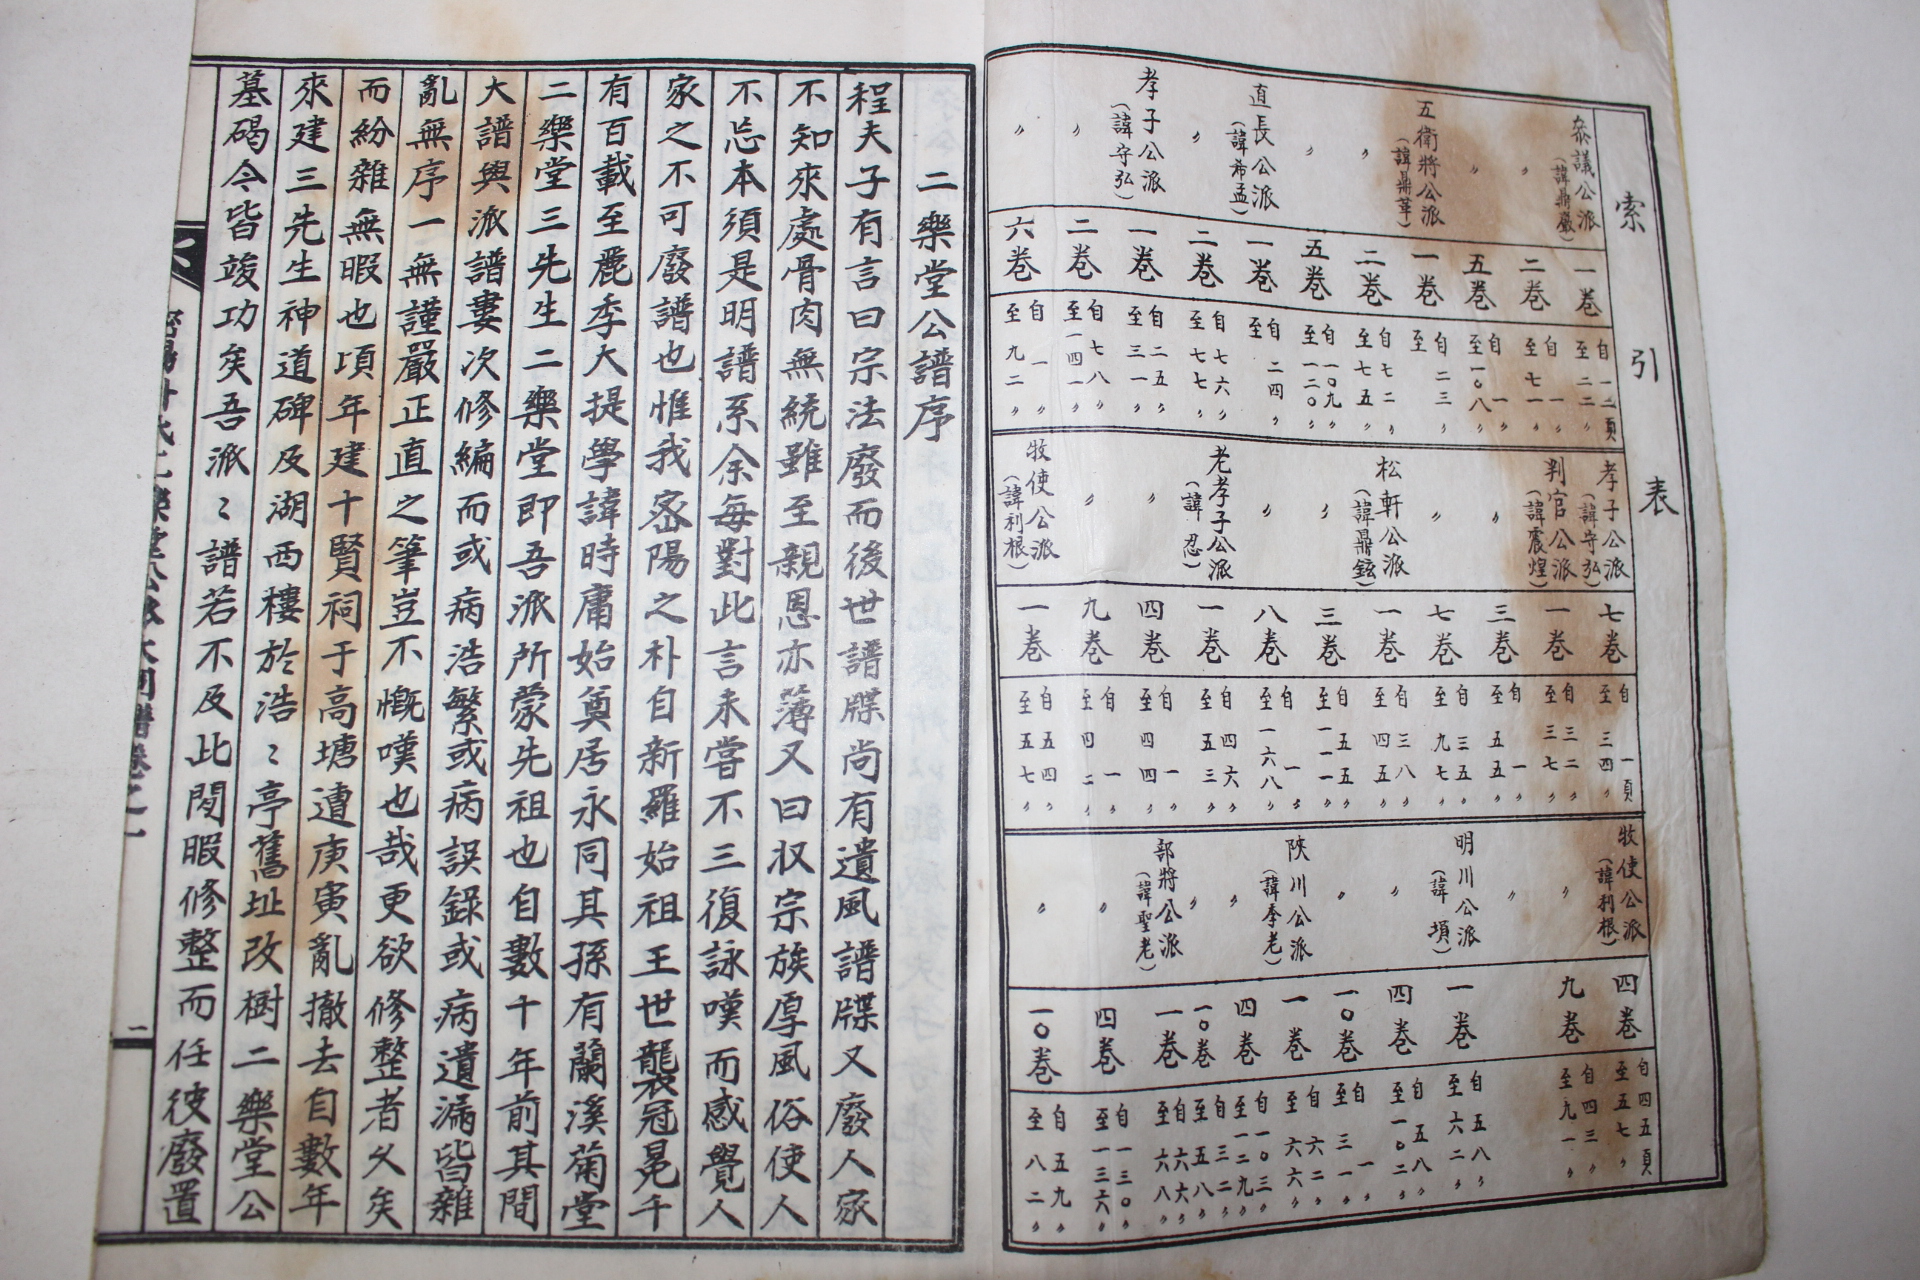 索引表
參議公派(諱鼎嚴) 一卷 自一二頁 至二二〃
〃 二卷 自一〃 至七一〃
〃 五卷 自一〃 至一〇八〃
五衛將公派(諱鼎華) 一卷 自二三〃 至
〃 二卷 自七二〃 至七五〃
〃 五卷 自一〇九〃 至一二〇〃
直長公派(諱希孟) 一卷 自二四〃 至
〃 二卷 自七六〃 至七七〃
孝子公派(諱守弘) 一卷 自二五〃 至三一〃
〃 二卷 自七八〃 至一四一〃
〃 六卷 自一〃 至九二〃
孝子公派(諱守弘) 七卷 自一頁 至三四〃
判官公派(諱震煌) 一卷 自三二〃 至三七〃
〃 三卷 自一〃 至五五〃
〃 七卷 自三五〃 至九七〃
松軒公派(諱鼎鉉) 一卷 自三八〃 至四五〃
〃 三卷 自五五〃 至一一一〃
〃 八卷 自一〃 至一六八〃
老孝子公派(諱忍) 一卷 自四六〃 至五三〃
〃 四卷 自一〃 至四四〃
〃 九卷 自一〃 至四二〃
牧使公派(諱利根) 一卷 自五四〃 至五七〃
牧使公派(諱利根) 四卷 自四五頁 至五七〃
〃 九卷 自四三〃 至九一〃
明川公派(諱塤) 一卷 自五八〃 至六二〃
〃 四卷 自五八〃 至一〇二〃
〃 一〇卷 自一〃 至三一〃
陜川公派(諱季老) 一卷 自六二〃 至六六〃
〃 四卷 自一〇三〃 至一二九〃
〃 一〇卷 自三二〃 至五八〃
部將公派(諱聖老) 一卷 自六六〃 至六八〃
〃 四卷 自一三〇〃 至一三六〃
〃 一〇卷 自五九〃 至八二〃
二樂堂公譜序
程夫子有言曰宗法廢而後世譜牒尚有遺風譜牒又廢人家
不知來處骨肉無統雖至親恩亦薄又曰収宗族厚風俗使人
不忘本須是明譜系余每對此言未嘗不三復詠嘆而感覺人
家之不可廢譜也惟我密陽之朴自新羅始祖王世襲冠冕千
有百載至麗季大提學諱時庸始奠居永同其孫有蘭溪菊堂
二樂堂三先生二樂堂即吾派所蒙先祖也自數十年前其間
大譜與派譜婁次修編而或病浩繁或病誤錄或病遺漏皆雜
亂無序一無謹嚴正直之筆豈不慨嘆也哉更欲修整者久矣
而紛雜無暇也頃年建十賢祠于高塘遭庚寅亂撤去自數年
來建三先生神道碑及湖西樓於浩〻亭舊址改樹二樂堂公
墓碣今皆竣功矣吾派〻譜若不及此閒暇修整而任彼廢置
二